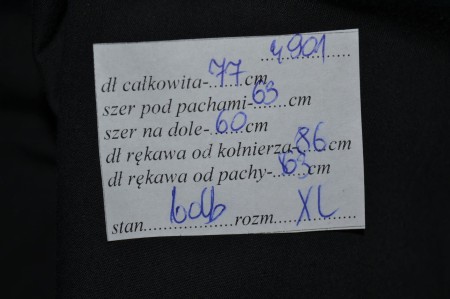 4901
dł całkowita-77cm
szer pod pachami-63cm
szer na dole-60cm
dł rękawa od kołnierza-86cm
dł rękawa od pachy-63cm
stan bdb rozm. XL